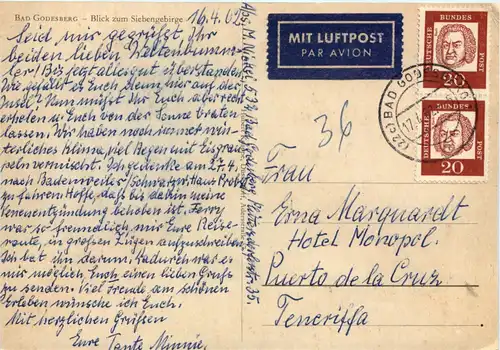 BAD GODESBERG – Blick zum Siebengebirge
16.4.62
Seid mir gegrüßt, Ihr
beiden lieben Weltenbumm-
ler! Bis jetzt alles gut überstanden.
Wie gefällt es Euch denn hier auf der
Insel? Nun müßt Ihr Euch aber recht
erholen u. Euch von der Sonne braten
lassen. Wir haben noch immer win-
terliches Klima, viel Regen mit Eisgrau-
peln vermischt. Ich gedenke am 27.4.
nach Badenweiler, Schwarzw. Haus
zu fahren. Hoffe, daß bis dahin meine
Venenentzündung behoben ist. Ferry
war so freundlich mir Eure Reise-
route, in großen Zügen aufzuschreiben.
Ich bat ihn darum. Dadurch war es
mir möglich Euch einen lieben Gruß
zu senden. Viel Freude am schönen
Erleben wünsche ich Euch.
Mit herzlichen Grüßen
Eure Tante Minnie.
Abs. M. 532 Bad Godesberg, 35.
MIT LUFTPOST
PAR AVION
DEUTSCHE
BUNDES
POST
20
DEUTSCHE
BUNDES
POST
20
(22c) BAD GODESBERG
17.
36
Frau
Erna Marquardt
Hotel Monopol.
Puerto de la Cruz
Teneriffa